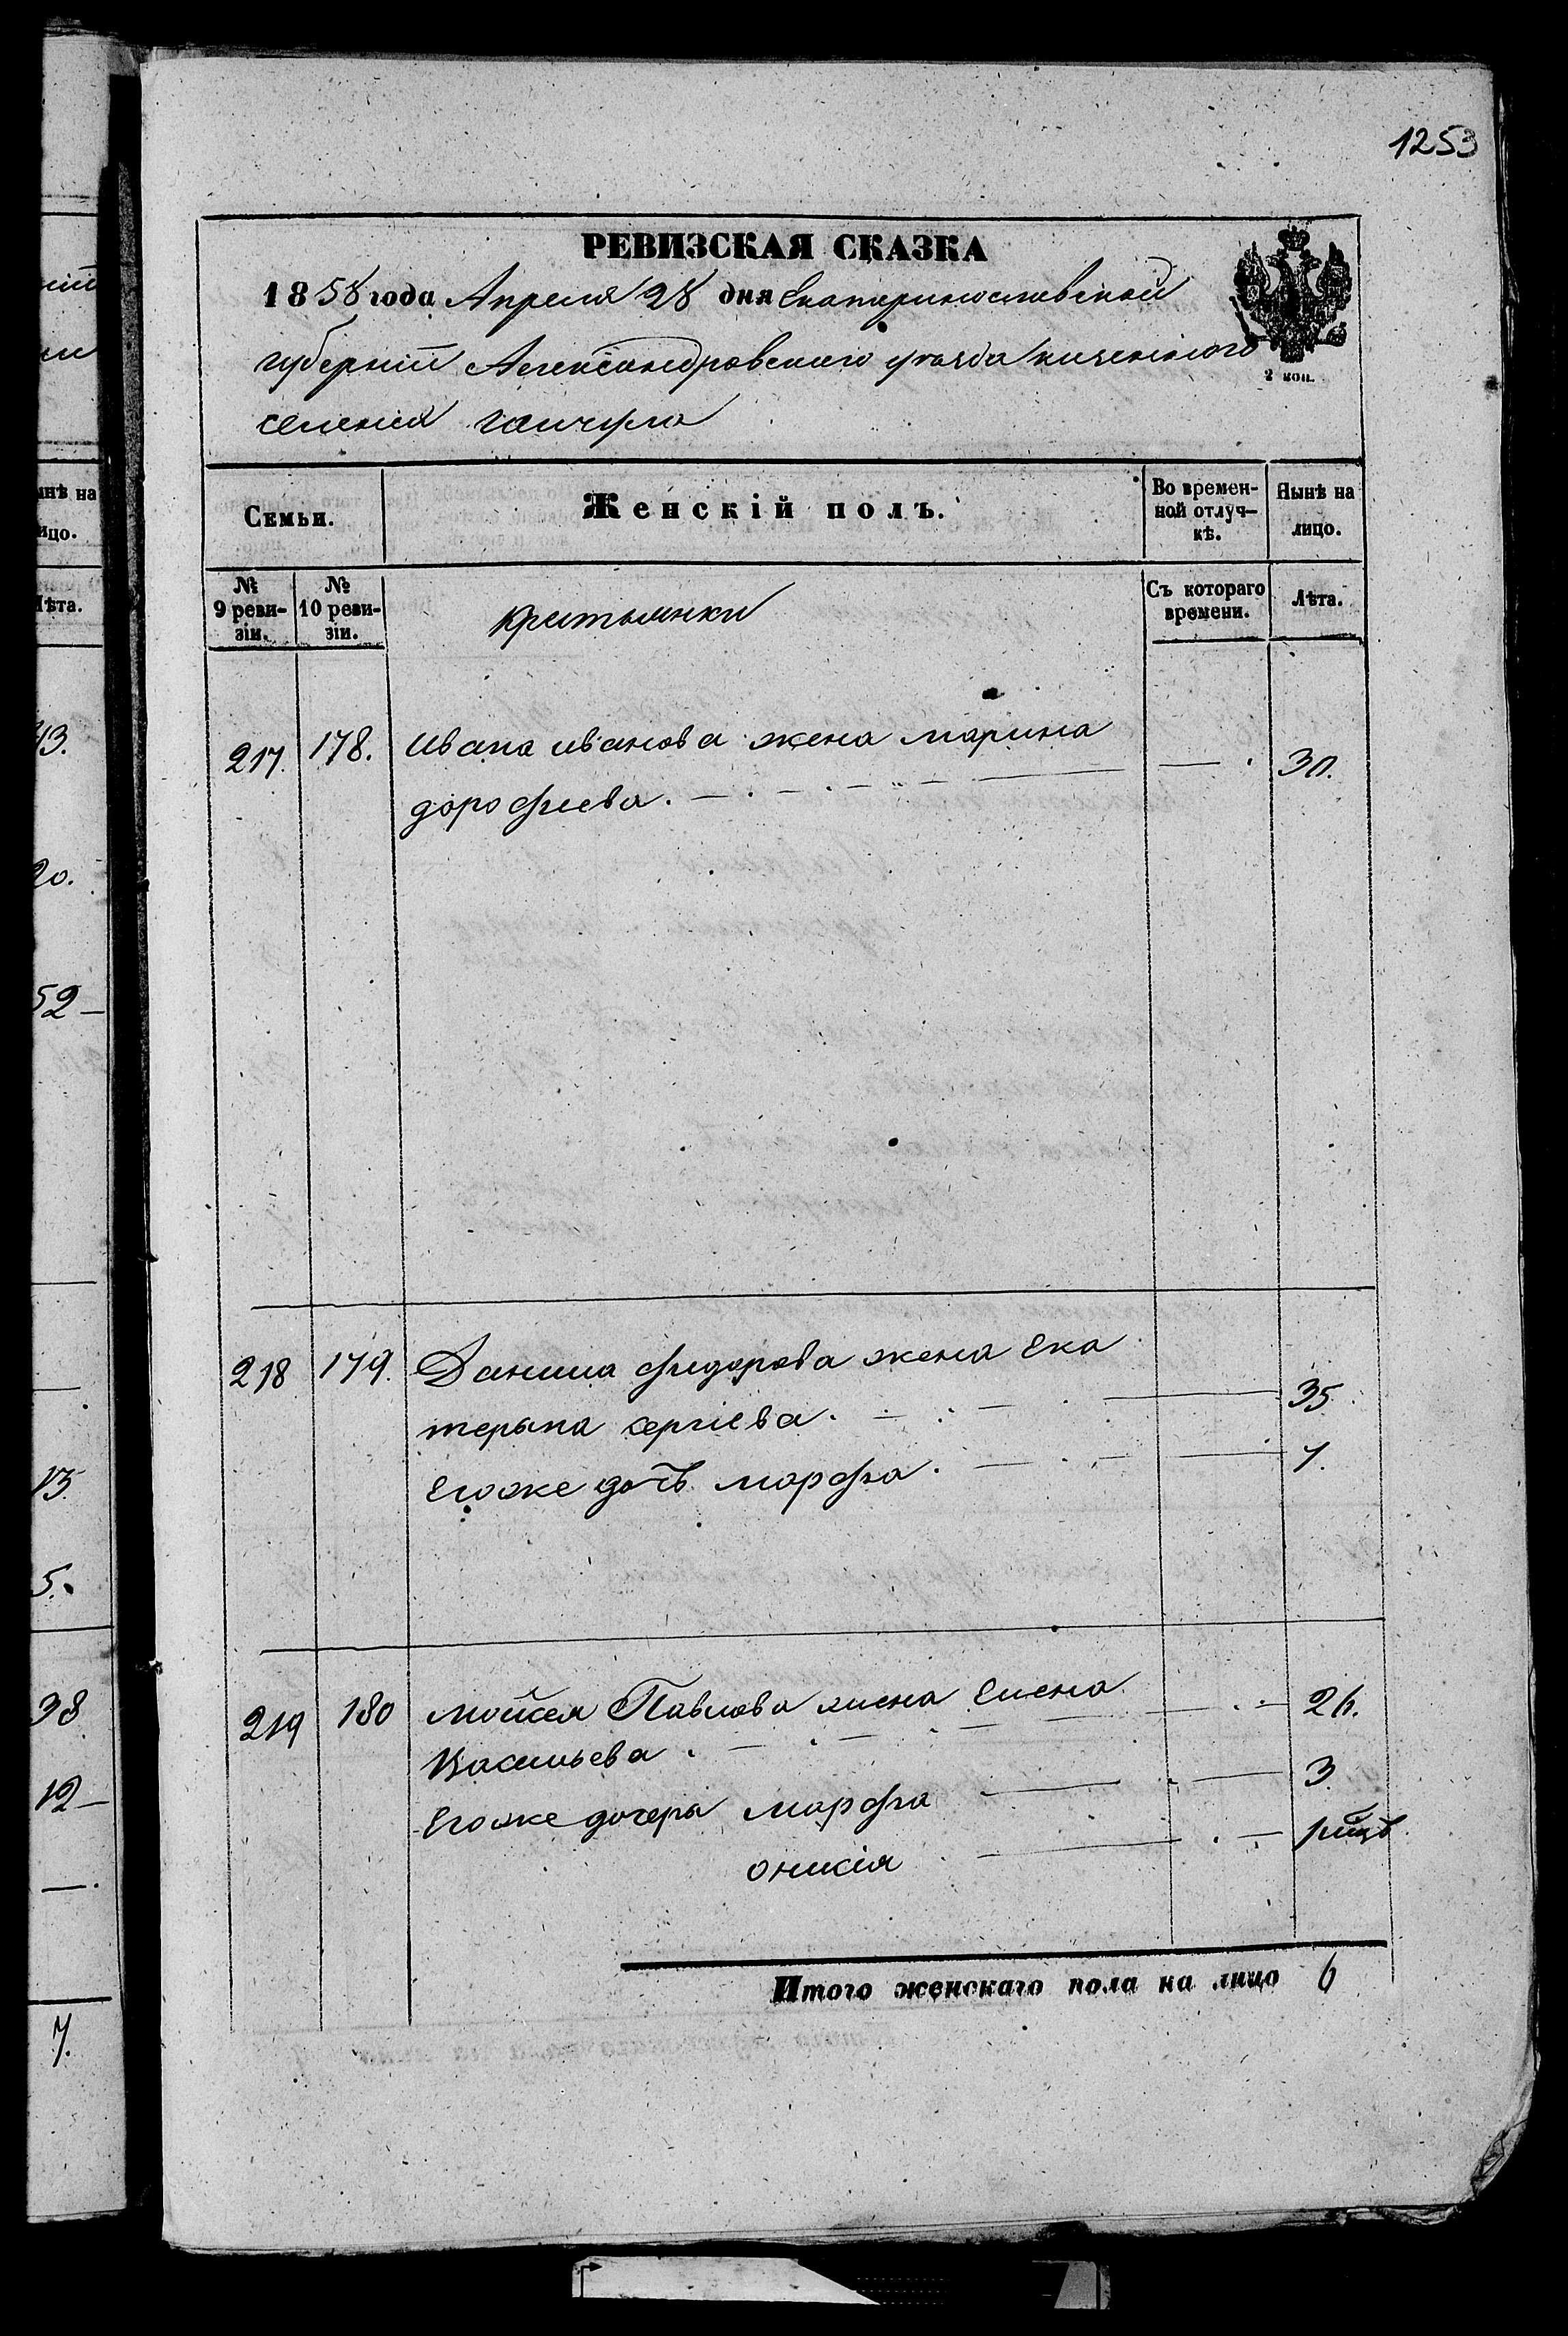 1253
РЕВИЗСКАЯ СКАЗКА
1858 года Апреля 28 дня Екатеринославской
губерніи Александровского уезда казенного
селения гайчула
2 коп.
Семьи.
Женскій полъ.
Во времен-
ной отлуч-
кѣ.
Нынѣ на
лицо.
№
9 реви-
зіи.
№
10 реви-
зіи.
крестьянки
Съ котораго
времени.
Лѣта.
217. 178. Ивана иванова жена марина
дорофиева. 30.
218 179. Данила фидорова жена Ека
терына сергіева. 35
Егоже дочъ марфа. 1.
219 180 мойсея Павлова жена Елена 26.
Васильева.
Егоже дочеры марфа 3
оникія
Итого женскаго пола на лицо 6
нѣ на
ицо.
Лѣта.
43.
20.
52
13
5.
38
12
7.